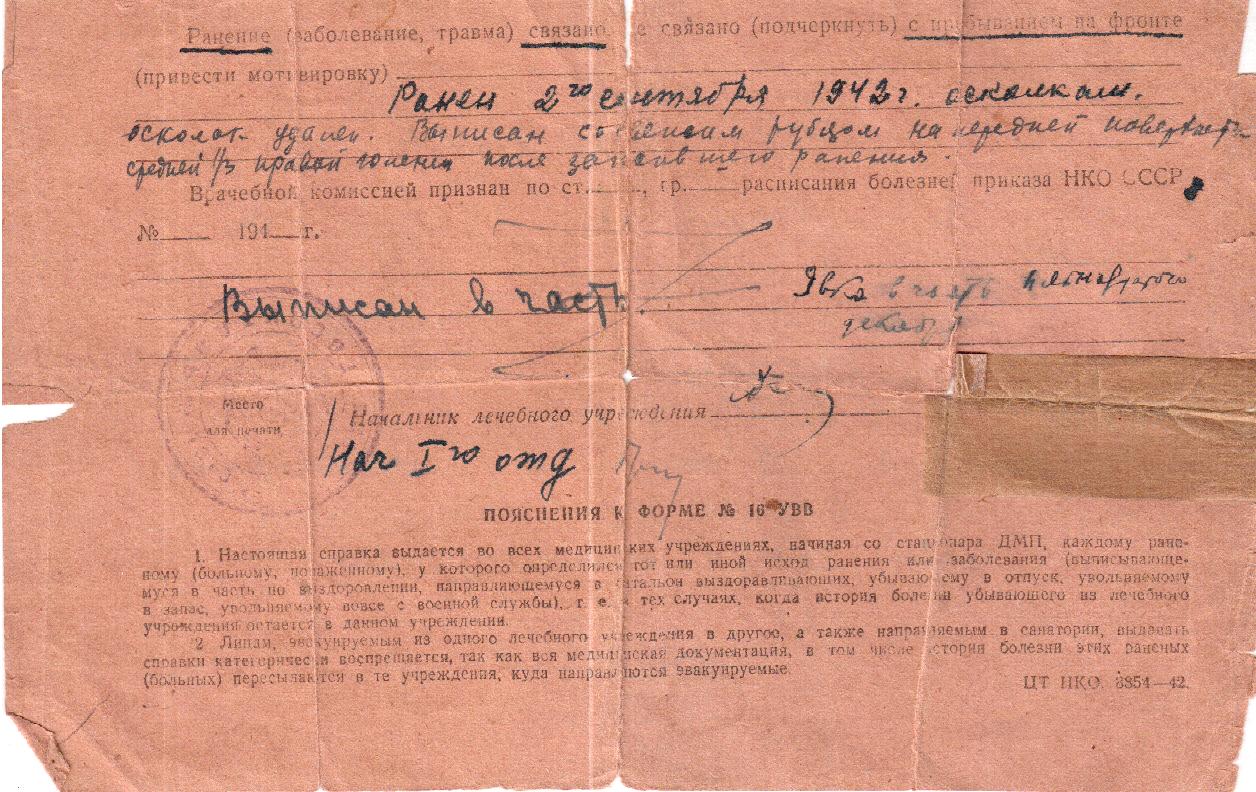 Ранение (заболевание, травма) связано, не связано (подчеркнуть) с пребыванием на фронте
(привести мотивировку)
Ранен 2го сентября 1942 г. осколком.
осколок удален. Выписан с рубцом на передней поверхности
средней 1/3 правой голени после ранения.
Врачебной комиссией признан по ст. , гр. расписания болезней приказа НКО СССР
№ 194 г.
Выписан в часть. Явка в часть
декабря
Место
для печати
Начальник лечебного учреждения
Нач Iго отд
ПОЯСНЕНИЯ К ФОРМЕ № 16 УВВ
1. Настоящая справка выдается во всех медицинских учреждениях, начиная со стационара ДМП, каждому ране-
ному (больному, пораженному), у которого определился тот или иной исход ранения или заболевания (выписывающе-
муся в часть по выздоровлении, направляющемуся в батальон выздоравливающих, убывающему в отпуск, увольняемому
в запас, увольняемому вовсе с военной службы), т. е. в тех случаях, когда история болезни убывающего из лечебного
учреждения остается в данном учреждении.
2 Лицам, эвакуируемым из одного лечебного учреждения в другое, а также направляемым в санатории, выдавать
справки категорически воспрещается, так как вся медицинская документация, в том числе история болезни этих раненых
(больных) пересылаются в те учреждения, куда направляются эвакуируемые.
ЦТ НКО. 8854—42.